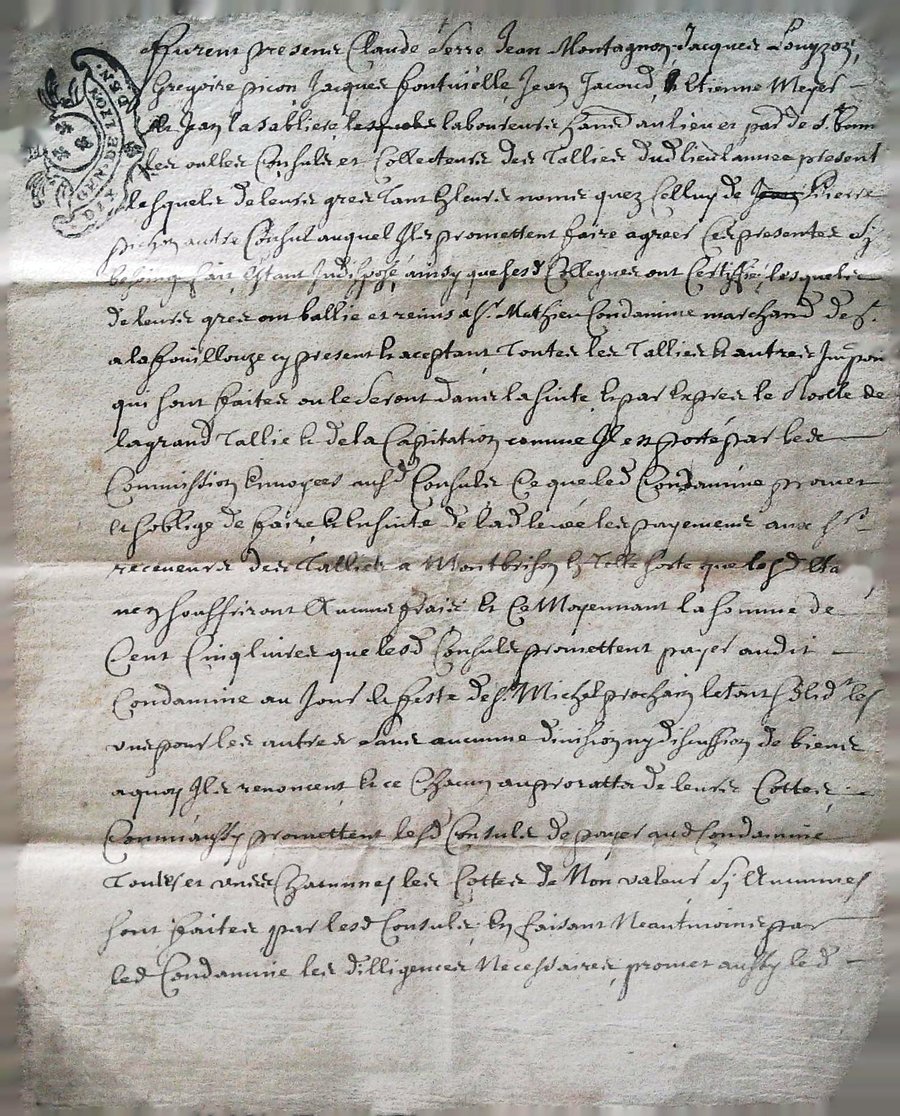 GEN DE LYON
DIX D S N
ffurent presens Claude Serre Jean Montagnon Jacques
Gregoire picon Jacques fontvielle Jean Jacoud, Etienne Meyer
Jean la sabliere lesquels laboureurs dud lieu et par de S. Bon
les oulles Consuls et Collecteurs des Tallies dud lieu lannee present
lesquels de leurs gres tant a leurs noms quez celluy de Jean Pierre
pichon autre Consul auquel Ils promettent faire agreer Ces presentes Sy
besoing fait Estant Indispozé ainsy que sesd Collegues ont Certiffié, lesquels
de leurs gres ont ballie et remis a Sr. Mathieu Condamine marchand de S.
a la fouillouze cy present & aceptant Toutes les Tallies & autres Impon
qui sont faites ou le seront dans la suite & par Expres le Rolle de
la grand Tallie & de la Capitation comme Il est porté par les
Commission Envoyees ausd Consuls Ce que led Condamine promet
et soblige de faire & Ensuite de lad levée les payements aux Srs
receveurs des Tallies a Montbrison En Telle sorte que lesd
nen souffriront Aucuns frais Et Ce Moyennant la somme de
Cent Cinq livres que lesd Consuls promettent payer audit
Condamine au Jour & feste de St. Michel prochain le tout solidt les
uns pour les autres sans aucunne division ny discussion de biens
a quoy Ils renoncent & ce Chacun au proratta de leurs Cottes
Comm'aussy promettent lesd Consuls de payer aud Condamine
Toutes et unes Chacunnes les Cottes de Non valeur Sy Aucunnes
sont faites par lesd Consuls, En faisant Neantmoins par
led Condamine les dilligences Necessaires, promet aussy led